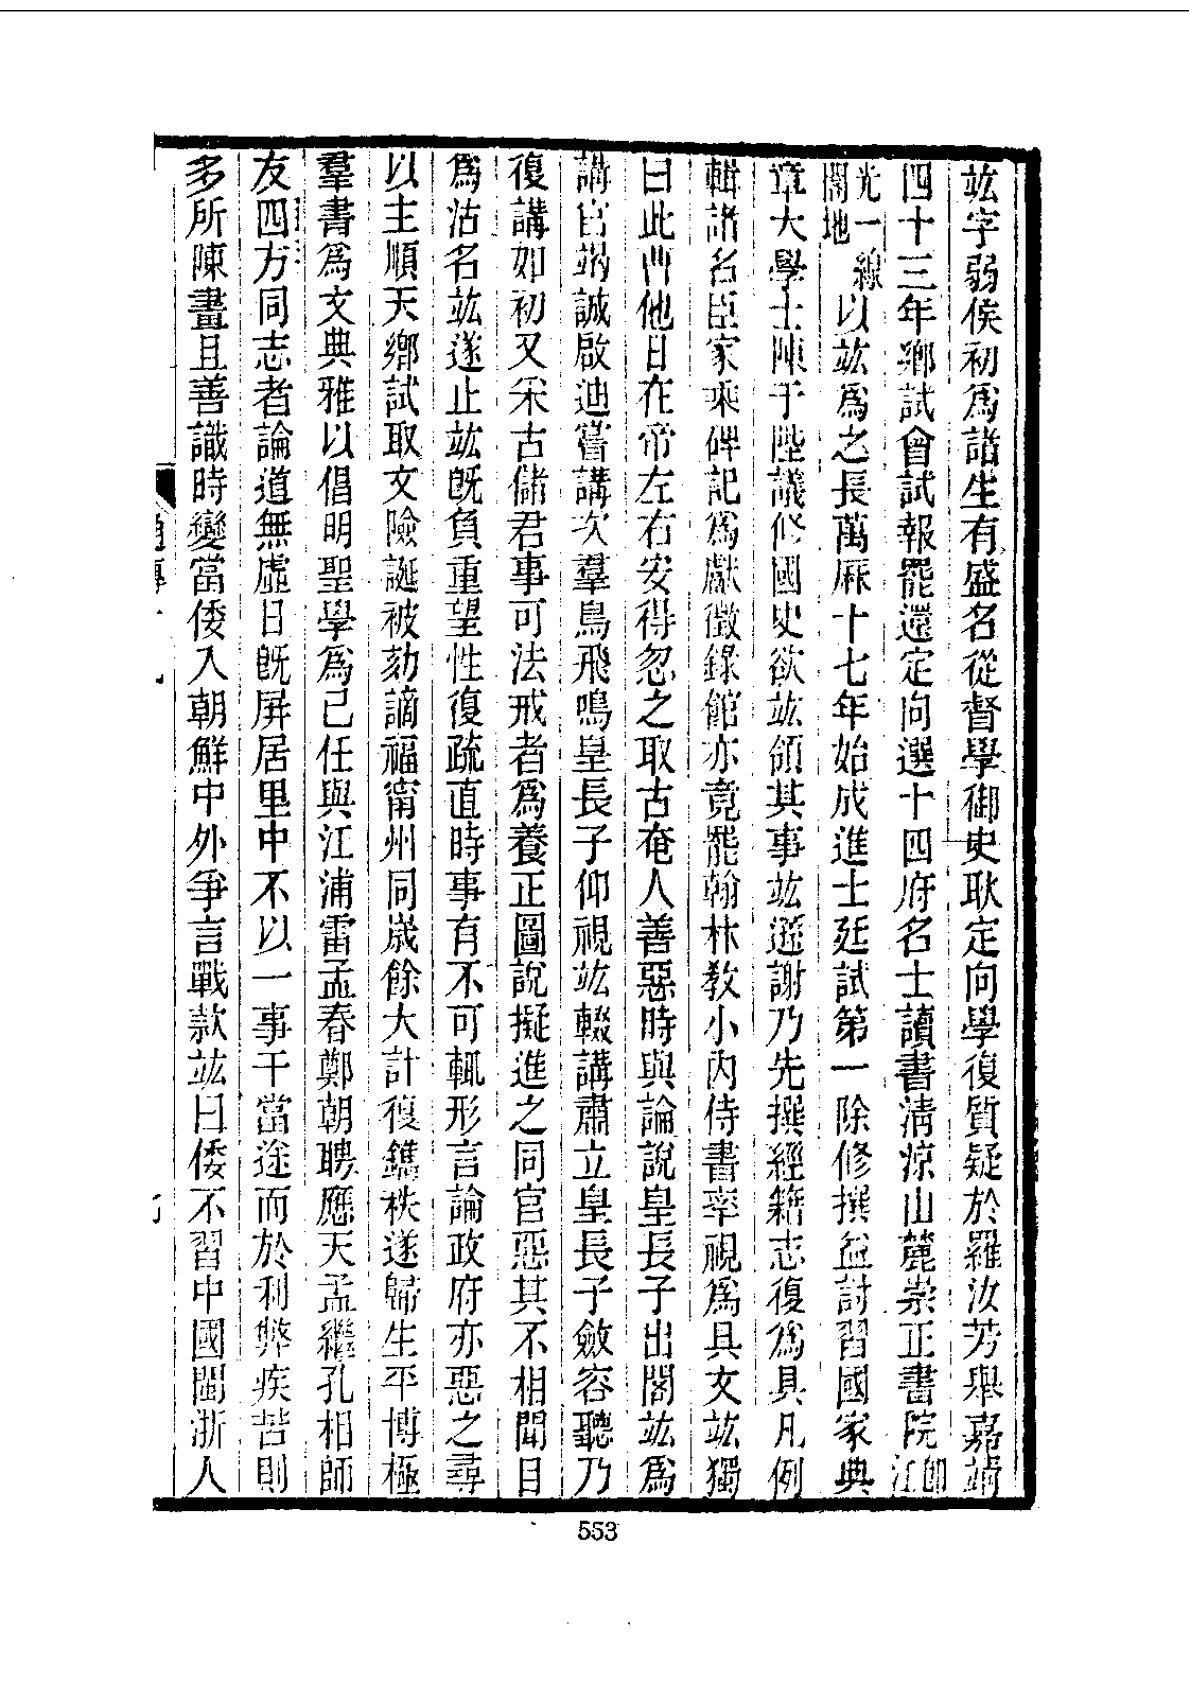 竑字弱侯初爲諸生有盛名從督學御史耿定向學復質疑於羅汝芳舉嘉靖
四十三年鄉試會試報罷還定向選十四府名士讀書淸涼山麓崇正書院卽江
光一線閣地以竑爲之長萬厤十七年始成進士廷試第一除修撰益討習國家典
章大學士陳于陛議修國史欲竑領其事竑遜謝乃先撰經籍志復爲具凡例
輯諸名臣家乘碑記爲獻徵錄館亦竟罷翰林敎小內侍書率視爲具文竑獨
曰此曹他日在帝左右安得忽之取古奄人善惡時與論說皇長子出閣竑爲
講官竭誠啟迪嘗講次羣鳥飛鳴皇長子仰視竑輟講肅立皇長子斂容聽乃
復講如初又釆古儲君事可法戒者爲養正圖說擬進之同官惡其不相聞目
爲沽名竑遂止竑旣負重望性復疏直時事有不可輒形言論政府亦惡之尋
以主順天鄉試取文險誕被劾謫福甯州同歲餘大計復鐫秩遂歸生平博極
羣書爲文典雅以倡明聖學爲己任與江浦雷孟春鄭朝聘應天孟繼孔相師
友四方同志者論道無虛日旣屏居里中不以一事干當途而於利弊疾苦則
多所陳畫且善識時變當倭入朝鮮中外爭言戰款竑曰倭不習中國閩浙人
553